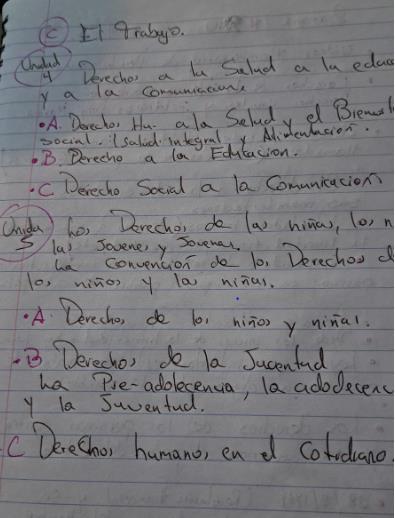 C El Trabajo.
Unidad 4 Derechos a la Salud a la educ
y a la Comunicacion.
• A. Derechos Hu. a la Salud y el Bienes
social. (salud integral y Alimentacion.
• B. Derecho a la Educacion.
• C Derecho Social a la Comunicacion
Unida 5 Los Derechos de las niñas, los n
las Jovenes y Jovenas.
La Convención de los Derechos d
los niños y las niñas.
• A. Derechos de los niños y niñas.
• B Derechos de la Juventud
La Pre-adolecencia, la adodecenc
y la Juventud.
C Derechos humanos en el Cotidiano.